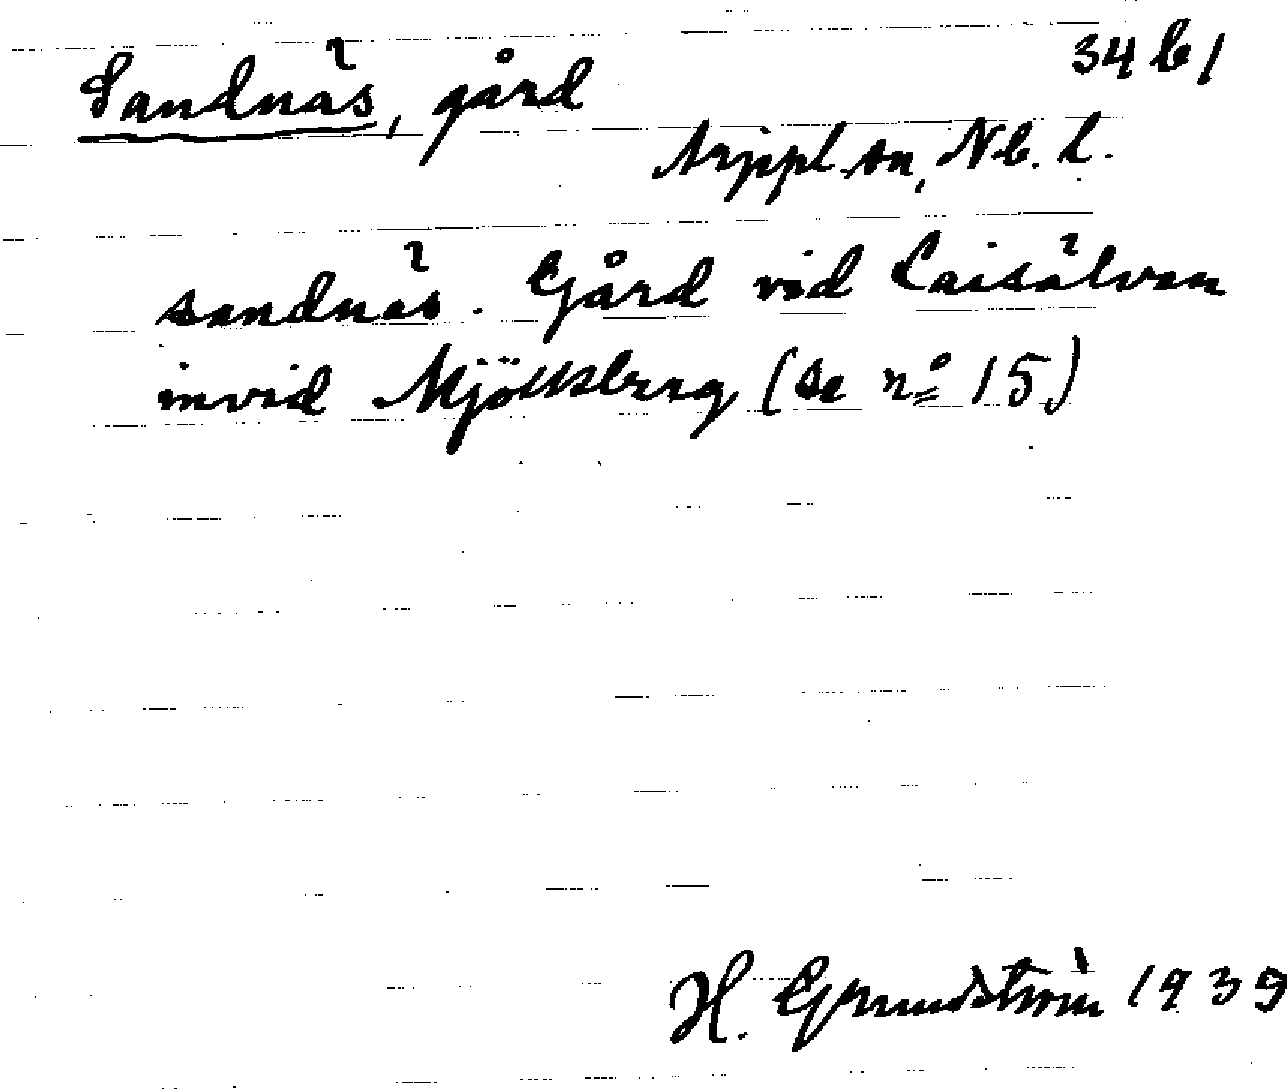 Sandnäs, gård 34 b 1
Arjepl. sn, Nb. l.
sandnäs. Gård vid Laisälven
invid Mjölkberg (se nº 15)
H. Grundström 1939